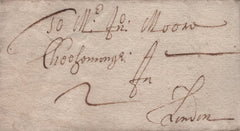 To Mr. Jno. Moore
Cheesemonger
In
London